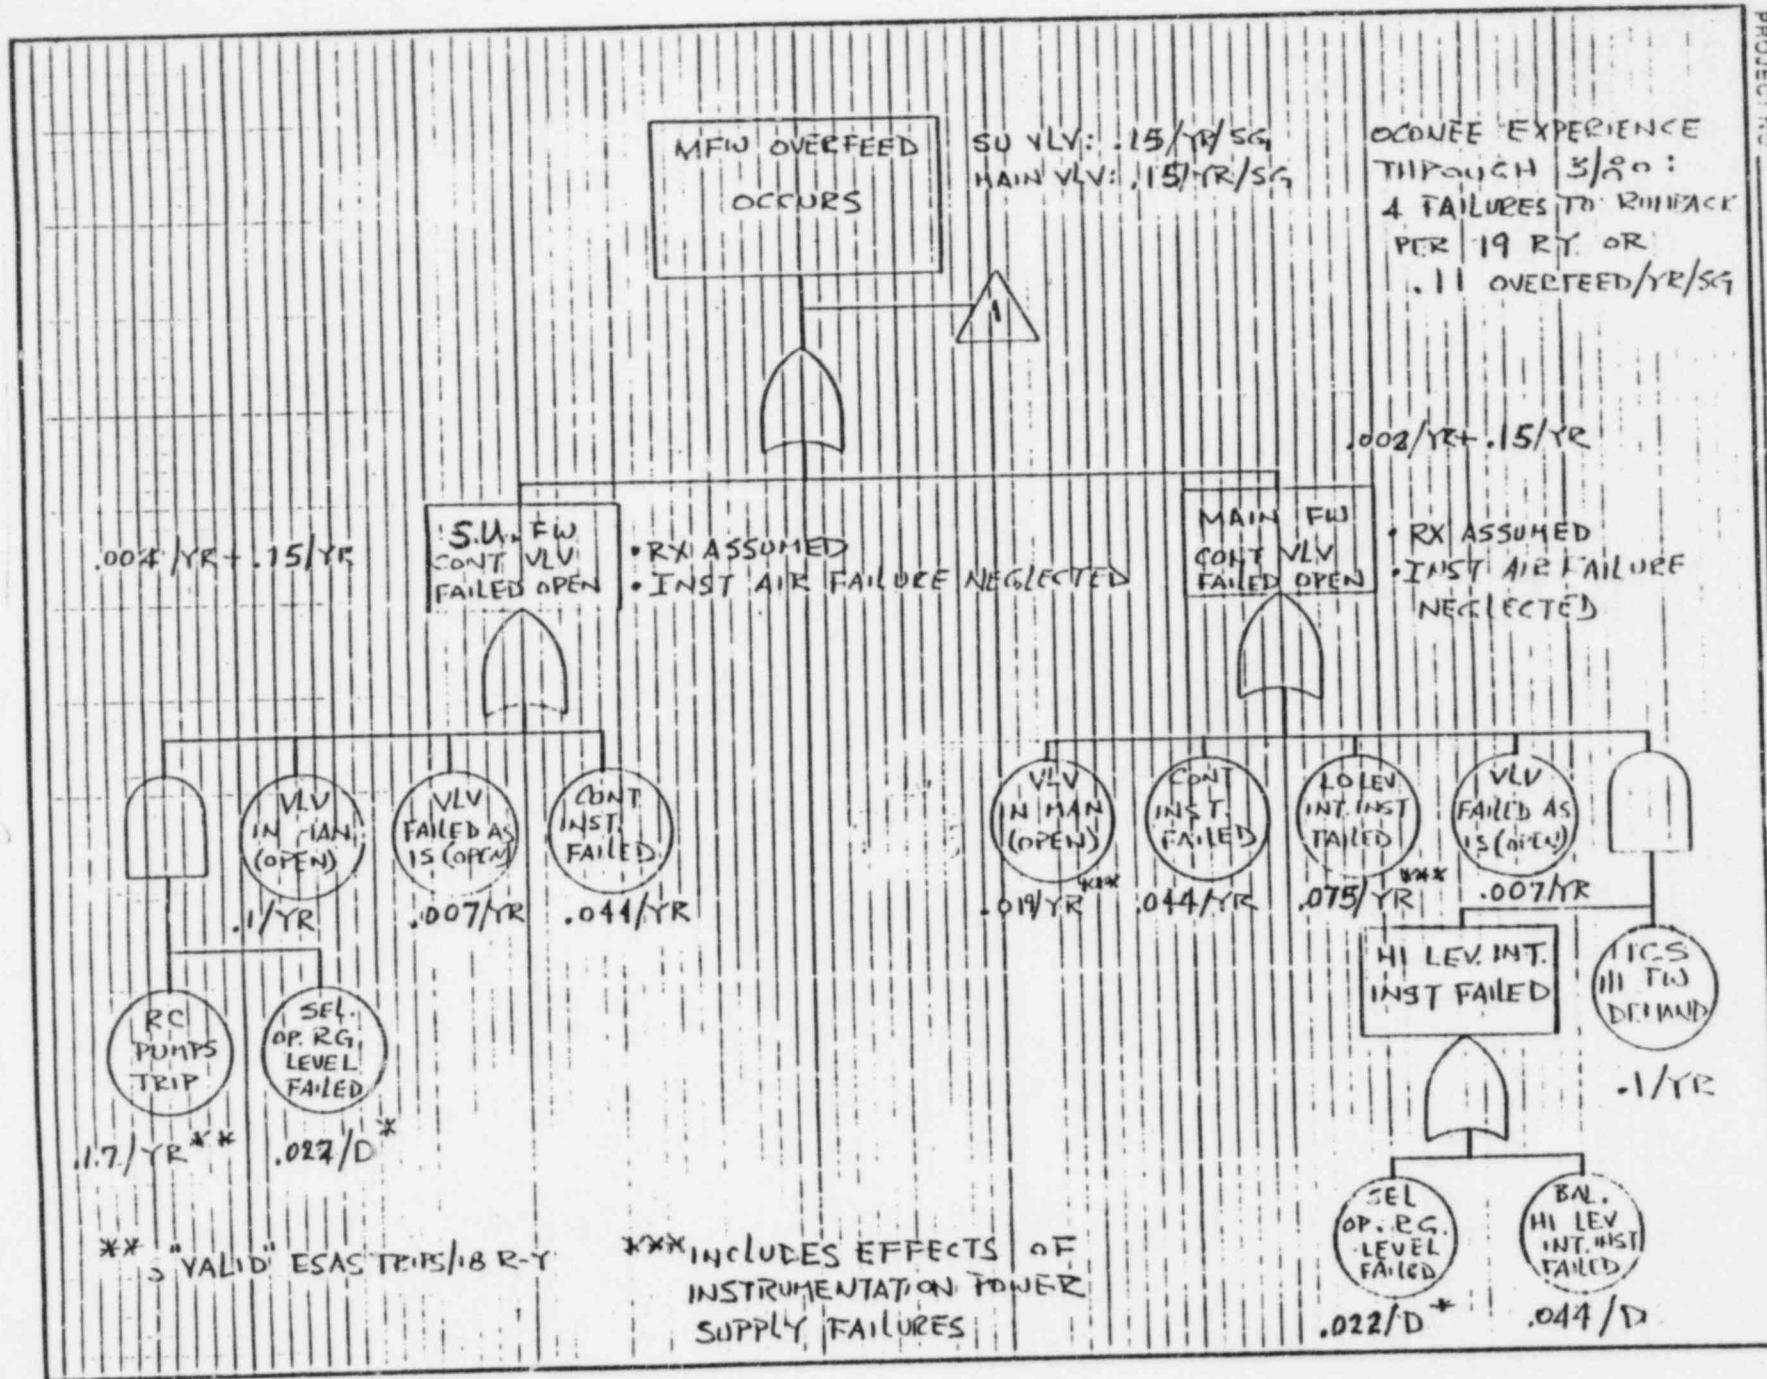 PROJECT NO
MFW OVERFEED
OCCURS
SU VLV: .15/YR/SG
MAIN VLV: .15/YR/SG
OCONEE EXPERIENCE
THROUGH
4 FAILURES TO RUNBACK
PER 19 RY OR
.11 OVERFEED/YR/SG
1
.002/YR + .15/YR
.004/YR + .15/YR
S.U. FW
CONT VLV
FAILED OPEN
• RX ASSUMED
• INST AIR FAILURE NEGLECTED
MAIN FW
CONT VLV
FAILED OPEN
• RX ASSUMED
• INST AIR FAILURE
NEGLECTED
VLV
IN MAN
(OPEN)
.1/YR
VLV
FAILED AS
IS (OPEN)
.007/YR
CONT
INST.
FAILED
.044/YR
VLV
IN MAN
(OPEN)
.019/YR***
CONT
INST.
FAILED
.044/YR
LO LEV
INT. INST
FAILED
.075/YR***
VLV
FAILED AS
IS (OPEN)
.007/YR
RC
PUMPS
TRIP
.17/YR**
SEL.
OP. RG.
LEVEL
FAILED
.022/D*
HI LEV. INT.
INST FAILED
ICS
HI FW
DEMAND
.1/YR
SEL
OP. RG.
LEVEL
FAILED
.022/D*
BAL.
HI LEV
INT. INST
FAILED
.044/D
** "VALID" ESAS TRIPS/18 R-Y
*** INCLUDES EFFECTS OF
INSTRUMENTATION POWER
SUPPLY FAILURES